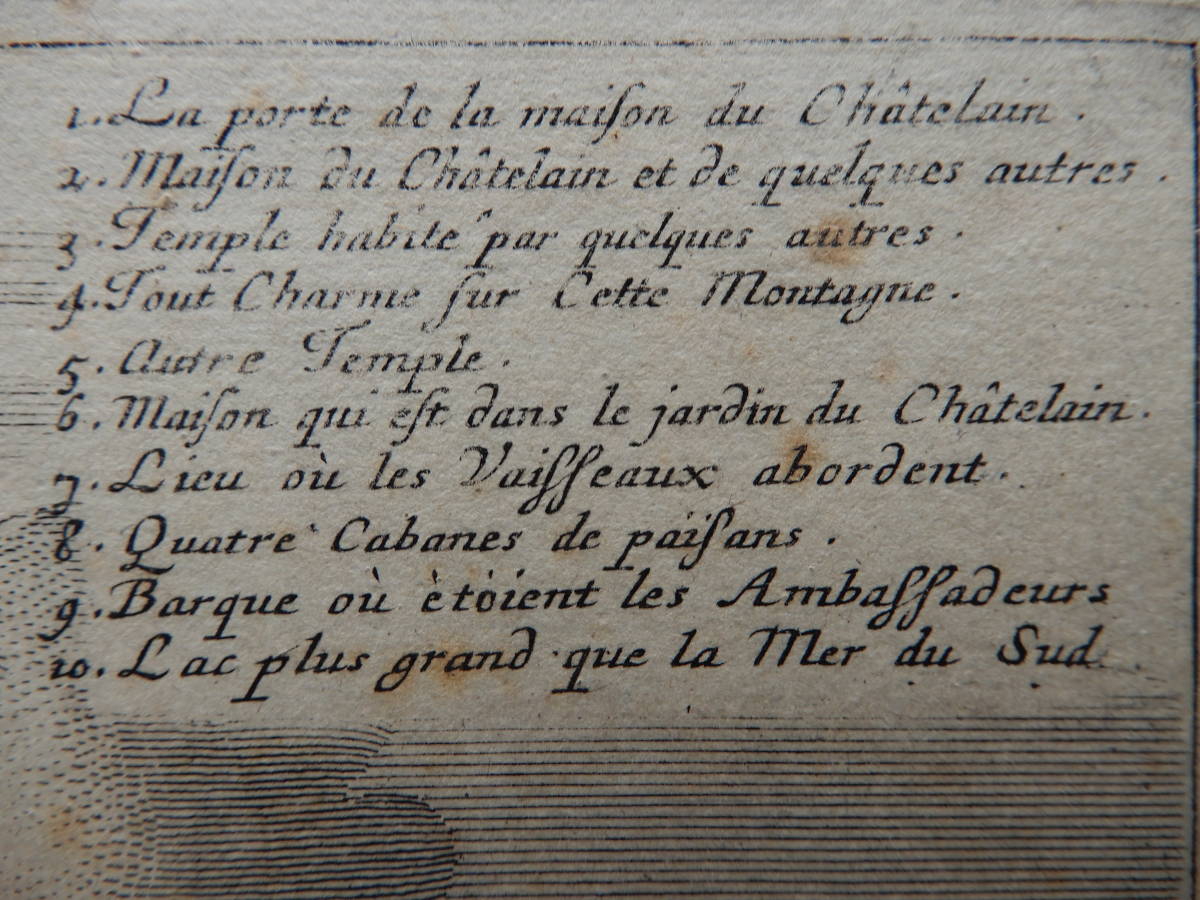 1. La porte de la maiſon du Châtelain.
2. Maiſon du Châtelain et de quelques autres.
3. Temple habité par quelques autres.
4. Tout Charme ſur Cette Montagne.
5. Autre Temple.
6. Maiſon qui eſt dans le jardin du Châtelain.
7. Lieu où les Vaiſſeaux abordent.
8. Quatre Cabanes de païſans.
9. Barque où ètoient les Ambaſſadeurs
10. Lac plus grand que la Mer du Sud